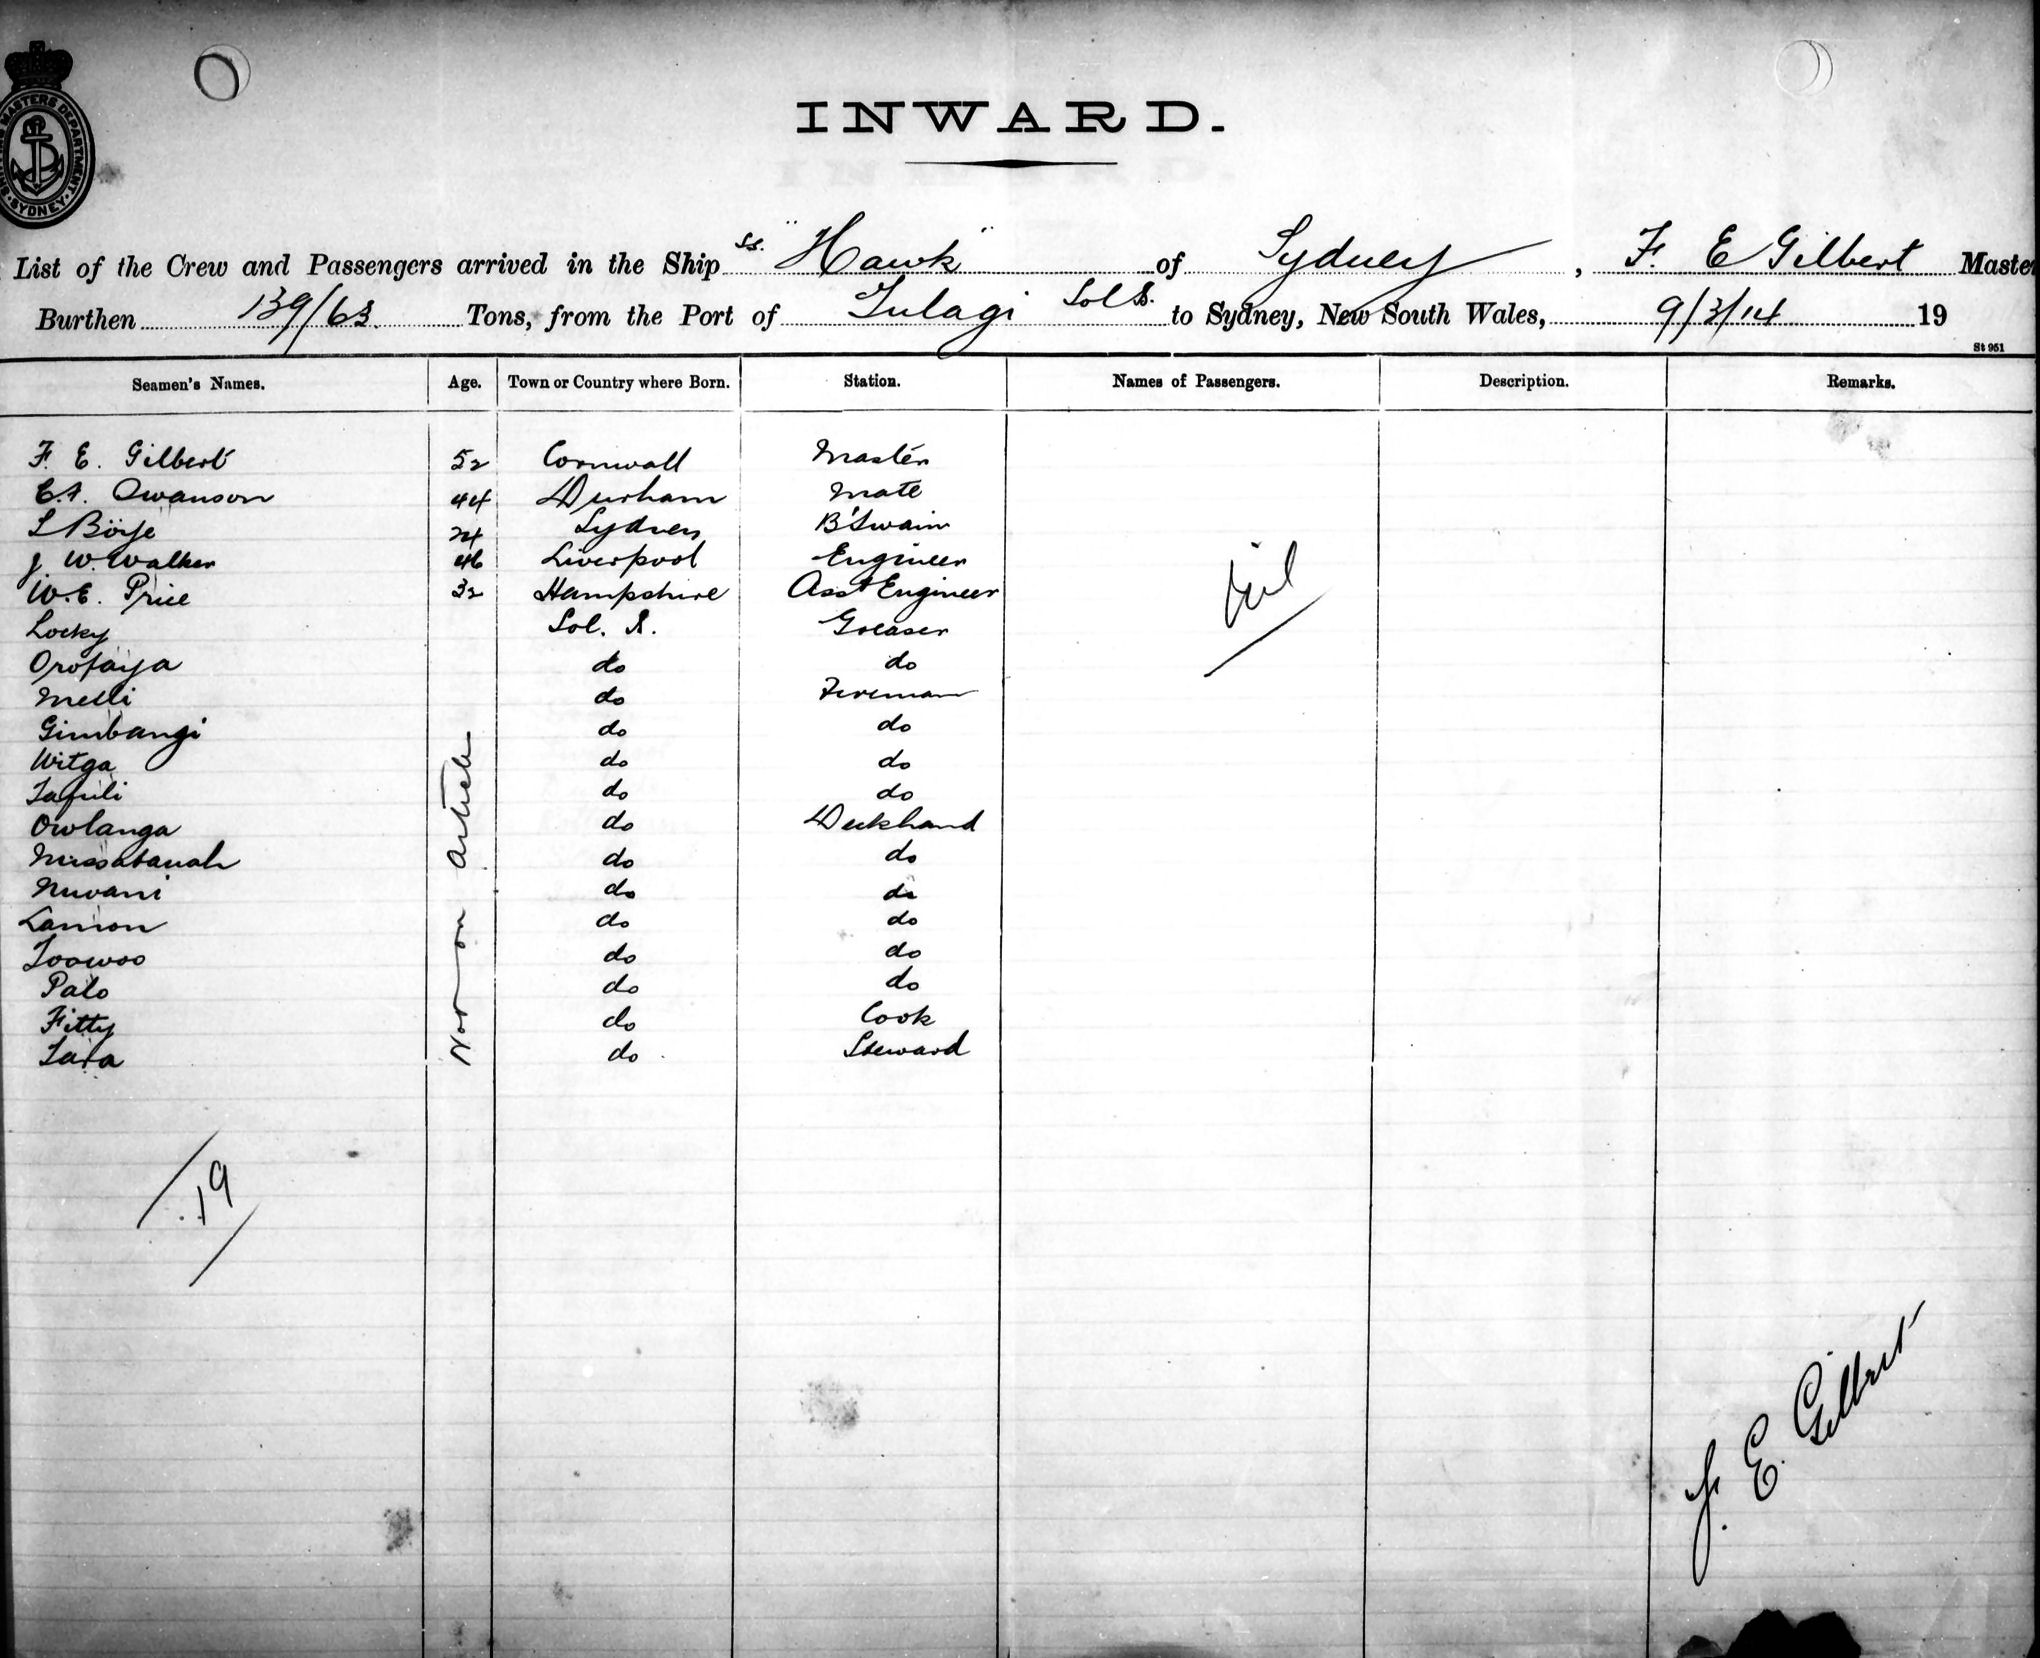 SHIPPING MASTERS DEPARTMENT · SYDNEY ·
INWARD.
List of the Crew and Passengers arrived in the Ship ss. "Hawk" of Sydney, F. E Gilbert Master
Burthen 139/63 Tons, from the Port of Tulagi Sol Is. to Sydney, New South Wales, 9/3/14 19
St 951
Seamen's Names. Age. Town or Country where Born. Station. Names of Passengers. Description. Remarks.
F. E. Gilbert 52 Cornwall Master
Swanson 44 Durham Mate
24 Sydney B'Swain
J W. Walker 46 Liverpool Engineer
W. E. Price 32 Hampshire Asst Engineer
Nil
Locky Sol. Is. Greaser
Orofaya do do
Melli do Fireman
Gimbangi do do
Witga do do
Tafuli do do
Owlanga do Deckhand
do do
Nuvani do do
Lamon do do
Toowoo do do
Palo do do
Fitty do Cook
Tara do Steward
Not on Articles
19
F. E. Gilbert